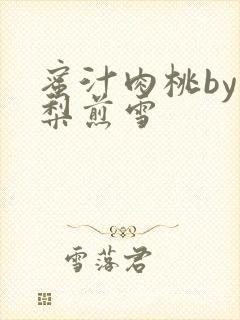 蜜汁肉桃by
梨煎雪
雪落君